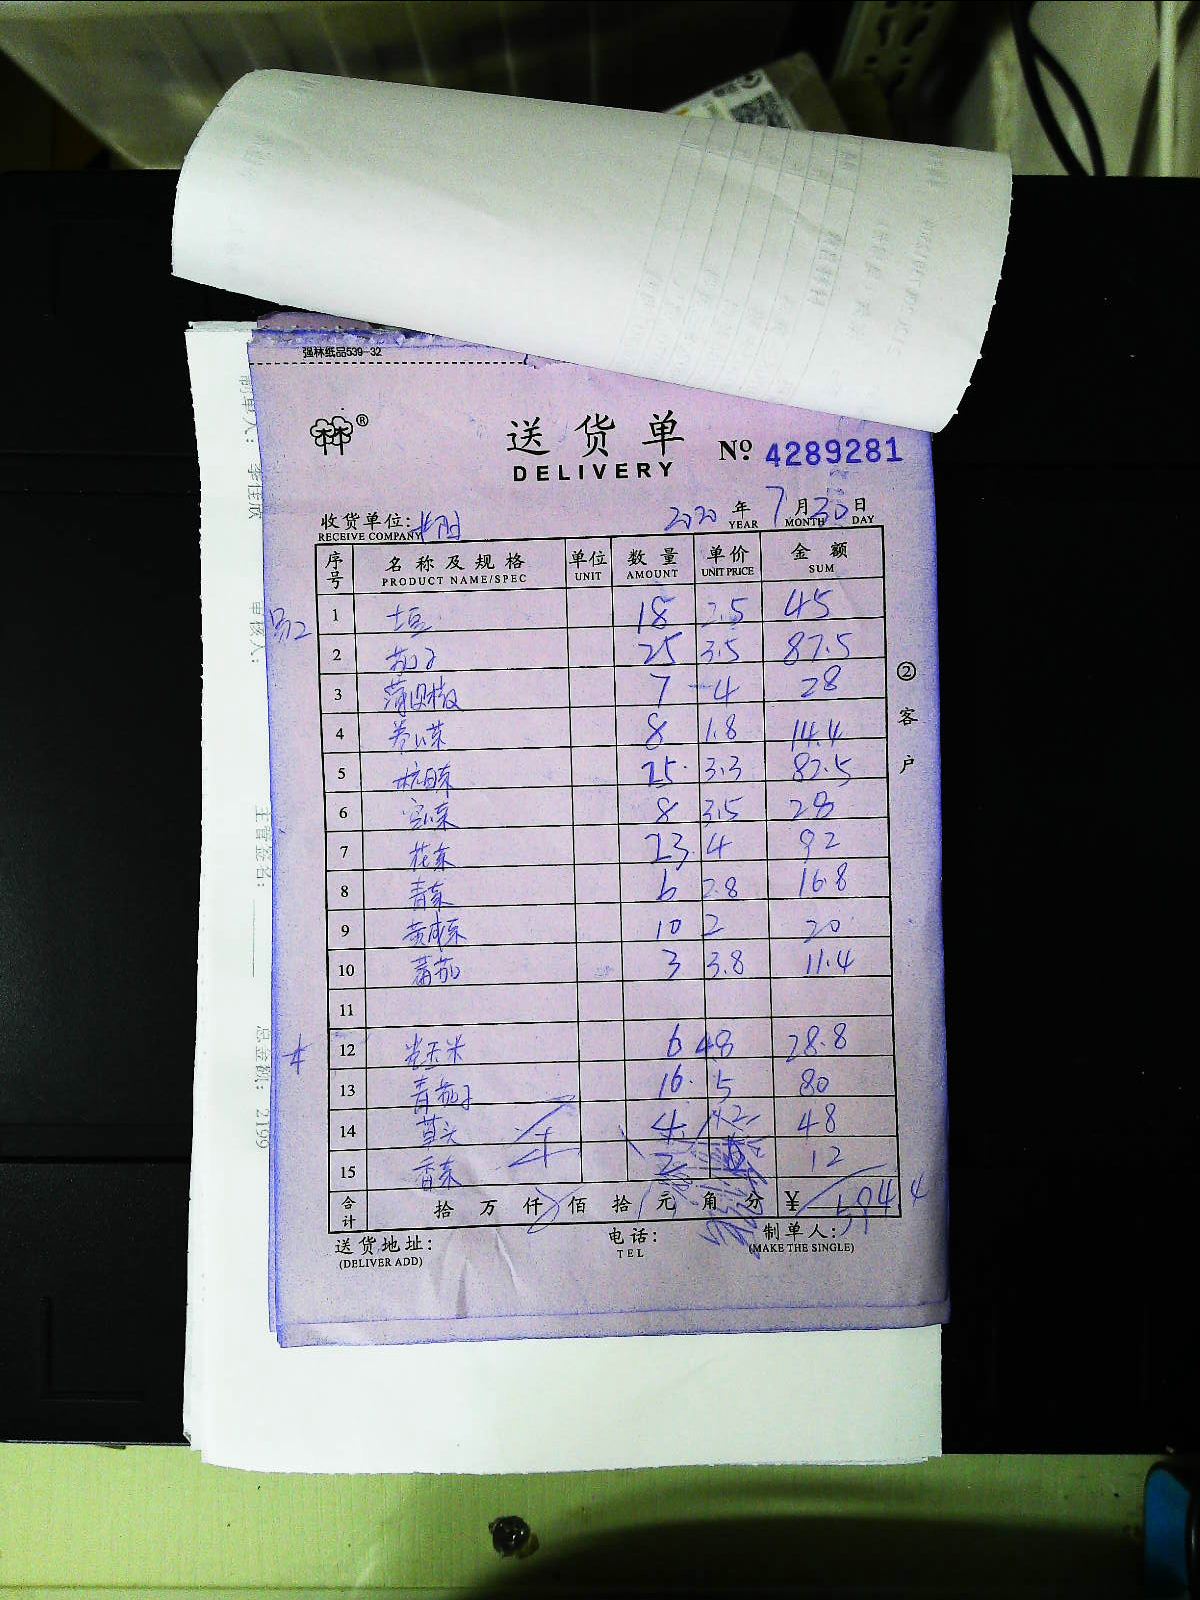 强林纸品539-32
林®
送货单 No 4289281
DELIVERY
收货单位: 2020 年 7 月 30 日
RECEIVE COMPANY YEAR MONTH DAY
序号 名称及规格 单位 数量 单价 金额
PRODUCT NAME/SPEC UNIT AMOUNT UNIT PRICE SUM
1 土豆 18 2.5 45
2 茄子 25 3.5 87.5
3 薄皮椒 7 4 28
4 8 1.8 14.4
5 杭白菜 25 3.3 82.5
6 8 3.5 28
7 花菜 23 4 92
8 青菜 6 2.8 16.8
9 黄咸菜 10 2 20
10 蕃茄 3 3.8 11.4
11
12 光玉米 6 48 28.8
13 青茄子 16 5 80
14 草头 4 12 48
15 香菜 2 12
合计 拾 万 仟 佰 拾 元 角 分 ¥ 594.4
送货地址: 电话: 制单人:
(DELIVER ADD) TEL (MAKE THE SINGLE)
②客户
审核人:
主管签名:
总金额: 2199